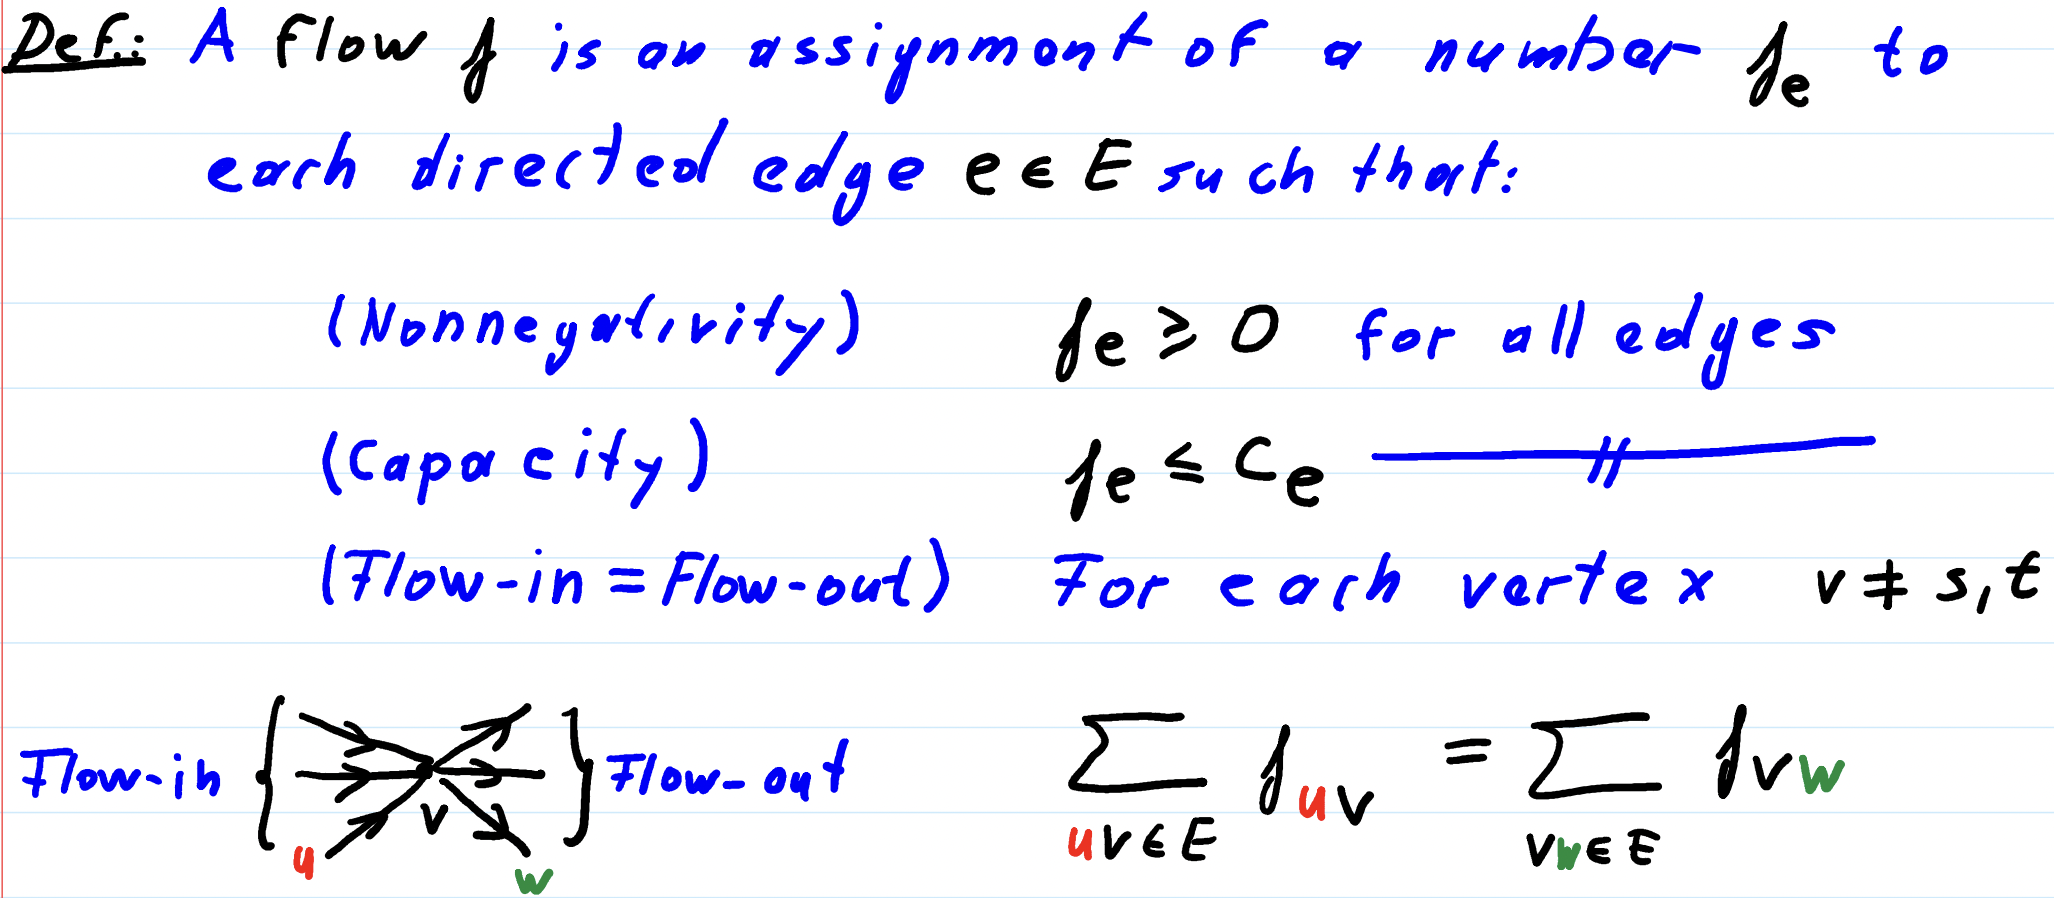 Def.: A flow f is an assignment of a number f_e to
each directed edge e ∈ E such that:
(Nonnegativity) f_e ≥ 0 for all edges
(Capacity) f_e ≤ C_e —〃—
(Flow-in = Flow-out) For each vertex v ≠ s, t
Flow-in { u v w } Flow-out ∑_{uv ∈ E} f_{uv} = ∑_{vw ∈ E} f_{vw}